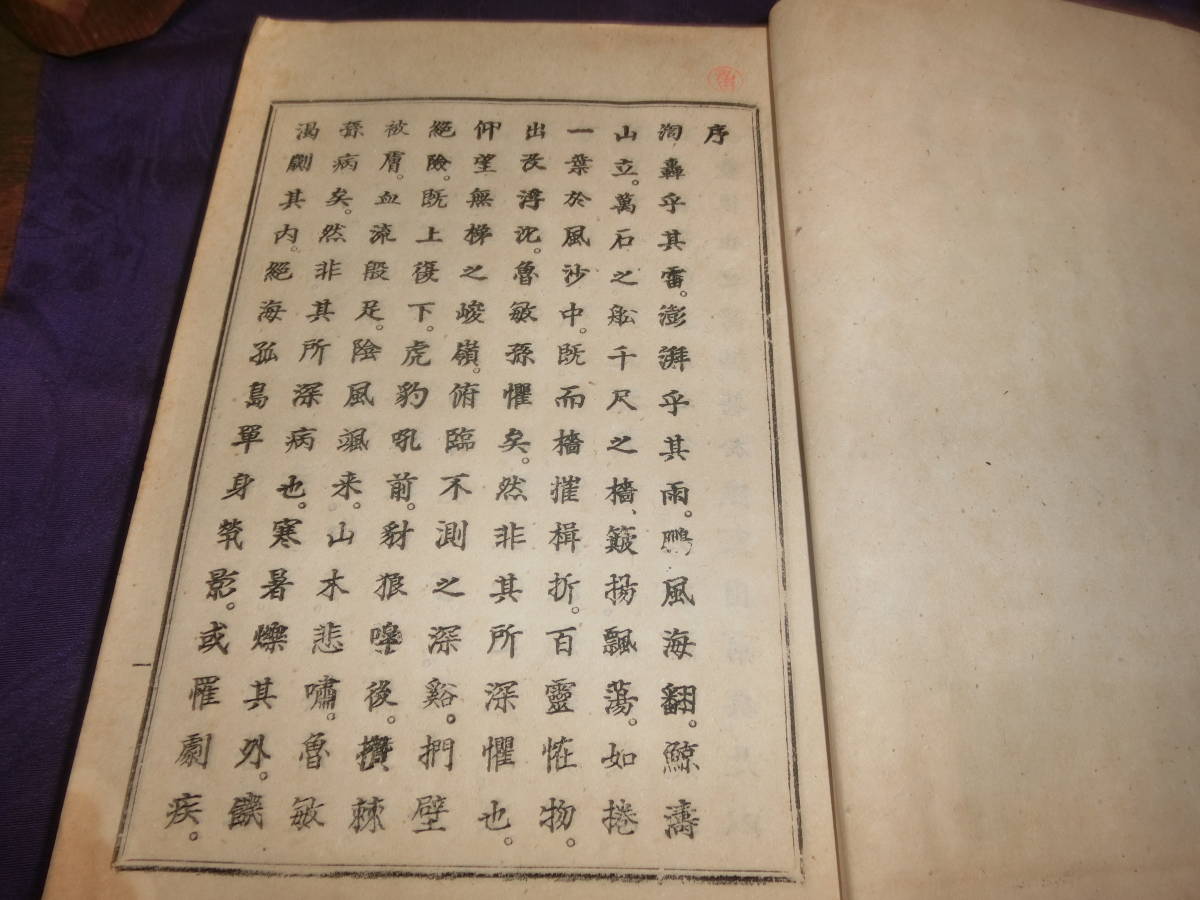 序
洶轟乎其雷。澎湃乎其雨。鵬風海翻。鯨濤
山立。萬石之舩千尺之檣、簸揚飄蕩。如捲
一葉於風沙中。既而檣摧楫折。百靈恠物。
出没浮沈。魯敏孫懼矣。然非其所深懼也。
仰望無梯之峻嶺。俯臨不測之深谿。捫壁
絕險。既上復下。虎豹吼前。豺狼嘷後。攢棘
被膚。血流殷足。陰風颯来。山木悲嘯。魯敏
孫病矣。然非其所深病也。寒暑爍其外。饑
渴其內。絕海孤島單身煢影。或罹劇疾。
一